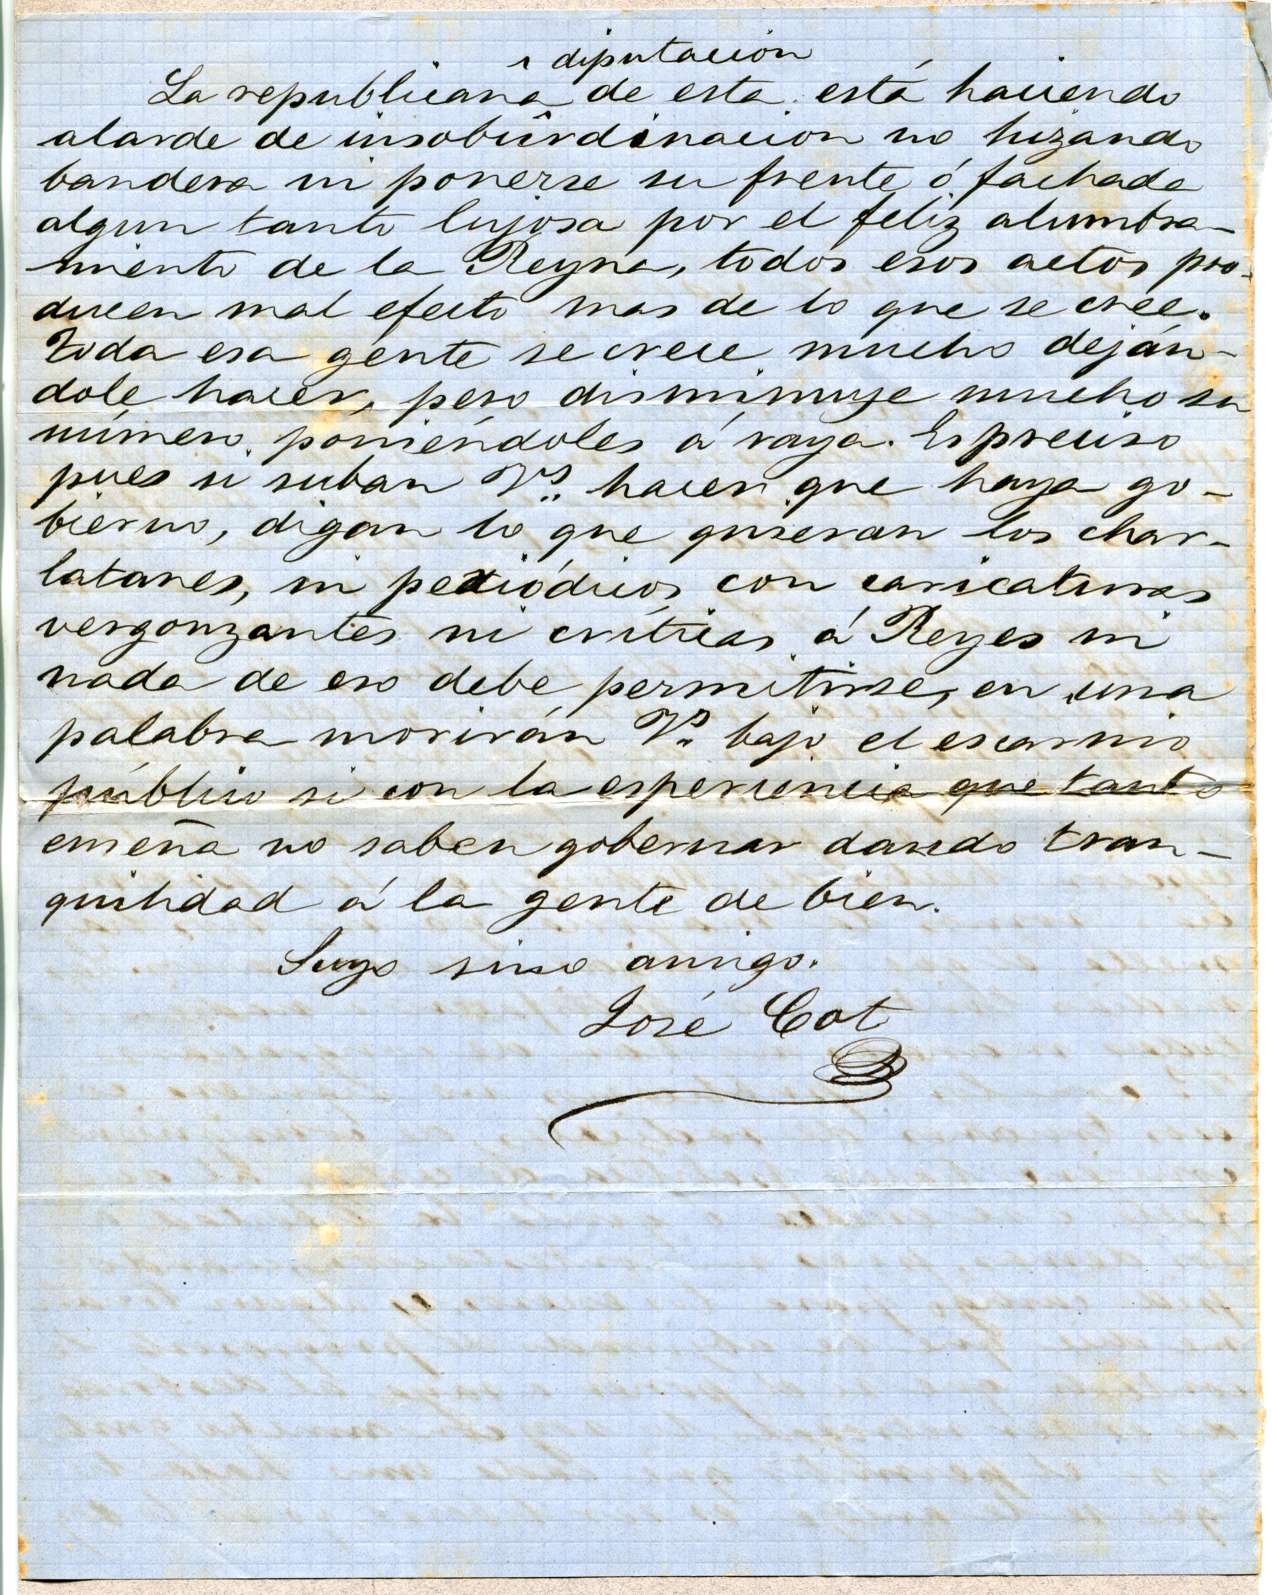 diputación
La republicana de esta está haciendo
alarde de insobûrdinacion no hizando
bandera ni ponerse su frente ó fachada
algun tanto lujosa por el feliz alumbra-
miento de la Reyna, todos esos actos pro-
ducen mal efecto mas de lo que se cree.
Toda esa gente se crece mucho deján-
dole hacer, pero disminuye mucho su
número poniéndoles á raya. Es preciso
pues si suban Vs. hacer que haya go-
bierno, digan lo que quieran los char-
latanes, ni periódicos con caricaturas
vergonzantes ni críticas á Reyes ni
nada de eso debe permitirse, en una
palabra morirán Vs. bajo el escarnio
público si con la esperiencia que tanto
enseña no saben gobernar dando tran-
quilidad á la gente de bien.
Suyo sinso amigo.
José Cot